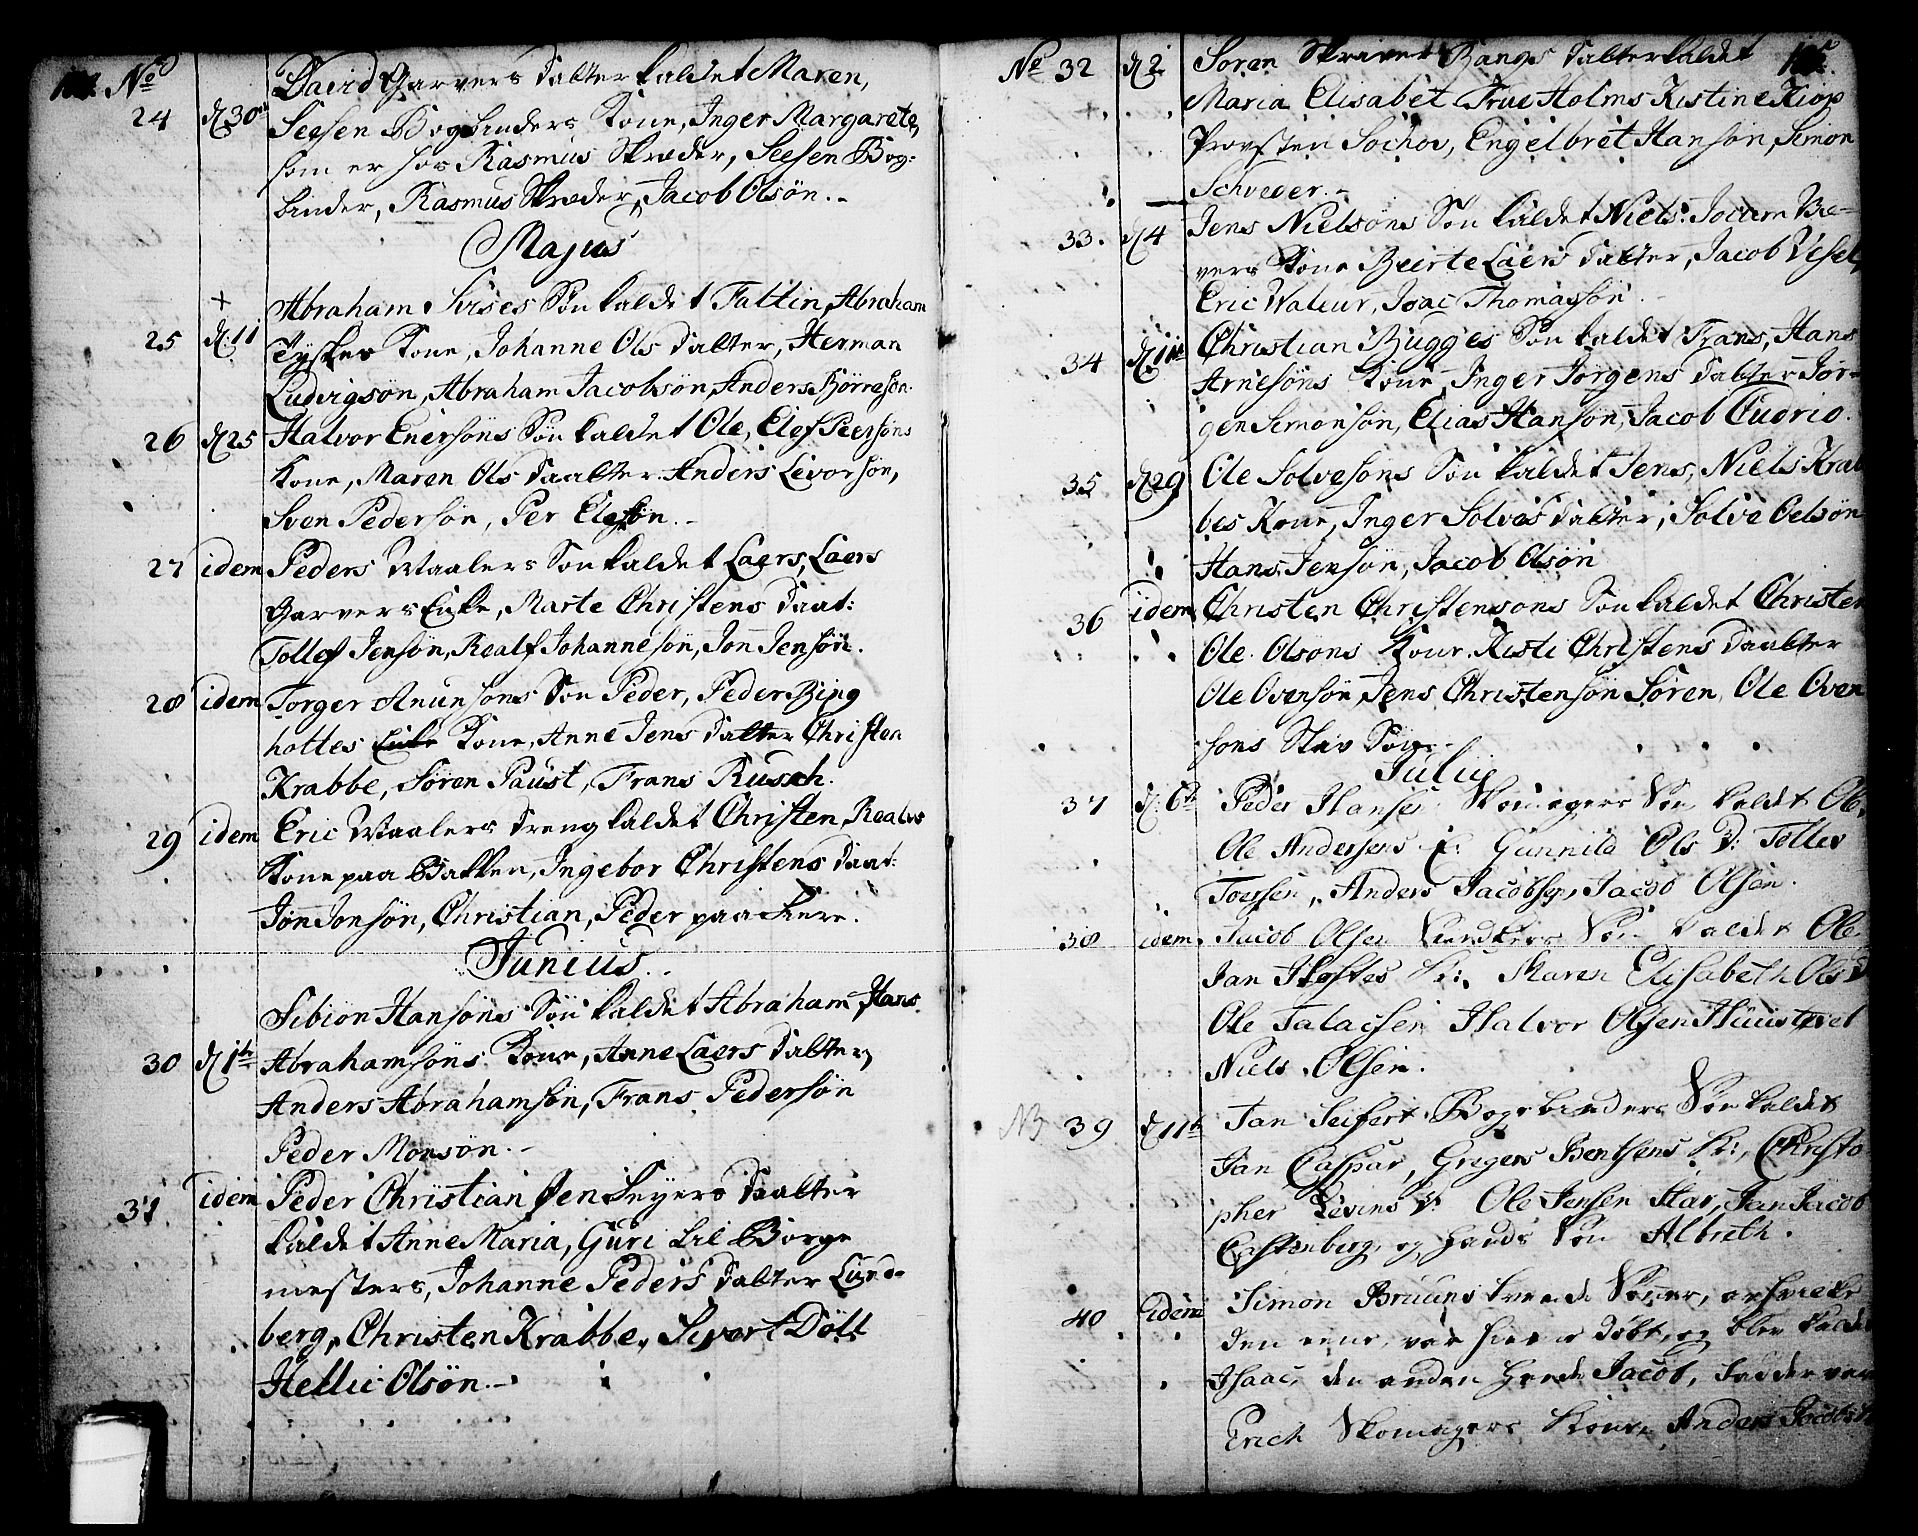 No
24 d 30 David Garvers Datter kaldet Maren,
Seesen Bogbinders Kone, Inger Margarete,
som er hos Rasmus Skræder, Seesen Bog:
binder, Rasmus Skræder, Jacob Olsön.-
Majus
+
25 d. 11 Abraham Sises Sön kaldet Fattin, Abraham
Tyskes Kone, Johanne Ols Datter, Herman
Ludvigsön, Abraham Jacobsön, Anders Börresön.
26 d 25 Halvor Enersöns Sön kaldet Ole, Elef Peersöns
Kone, Maren Ols Daatter. Anders Livorsön,
Sven Pedersön, Per Elefsön.-
27 idem Peders Maalers Sön kaldet Laers, Laers
Garvers Enke, Marte Christens Daat:
Tollef Jensön, Realf Johannesön, Jon Jensön.
28 idem Torger Anunsöns Sön Peder, Peder Bing
hottes Enke Kone, Anne Jens Datter Christen
Krabbe, Sören Paust, Frans Rusch.
29 idem Eric Maalers Dreng kaldet Christen, Realvs
Kone paa Bakken, Ingebor Christens Daat:
Jon Jonsön, Christian, Peder paa Kere.
Junius.
30 d 1te Sibion Hansöns Sön kaldet Abraham, Hans
Abrahamsöns Kone, Anne Laers Datter,
Anders Abrahamsön, Frans Pedersön
Peder Monsön.-
31 idem Peder Christian Jen Seyers Daatter
kaldet Anne Maria, Guri til Borge
mesters, Johanne Peders Datter Lund-
berg, Christen Krabbe, Sivort Dött
Hellic Olsön.-
No 32 d 2 Sören Skriver Bangs Datter kaldet
Maria Elisabet Frue Holms Kistine Kiop
Provsten Sochov, Engelbret Hansön, Simon
Schveder.-
33. d 4 Jens Nielsöns Sön kaldet Niels. Jocum Be-
vers Kone Beirte Laers Datter, Jacob Vesel,
Eric Waleur, Isac Thomassön.
34 d 11te Christian Bugges Sön kaldet Frans, Hans
Arnesöns Kone, Inger Jörgens Datter Jör-
gen Simonsön, Elias Hansön, Jacob Cudrio.
35 d 29 Ole Solvesöns Sön kaldet Jens, Niels Krab
bes Kone, Inger Solves Datter, Solve Oelsön
Hans Jensön, Jacob Olsön
36 idem Christen Christensöns Sön kaldet Christen
Ole Olsöns Kone. Kisti Christens Daatter
Ole Ovensön, Jens Christensön Sören, Ole Oven
söns Stiv Sön.-
Julii
37 d. 6te Peder Hansen Skomagers Sön kaldet Ole,
Ole Andersens E. Gunnild Ols D: Tollev
Toersen, Anders Jacobsen, Jacob Olsen.
38 idem. Jacob Olsen Sön kaldet Ole
Jan K: Maren Elisabeth Ols D
Ole Falacsen Halvor Olsen
Niels Olsen.
NB 39 d 11te Jan Seifert Bogebinders Sön kaldet
Jan Caspar, Gregers Bentsens K:, Christo
pher Levins D: Ole Jensen Star, Jan Jacob
Castenberg, og hands Sön Albreth.
40 idem Simon Bruuns tvende Sönner, af hvilke
den eene, var hiemedöbt, og blev kaldet
Isaac, den anden heede Jacob, Fadder var
Erich Skomagers Kone, Anders Jacobs